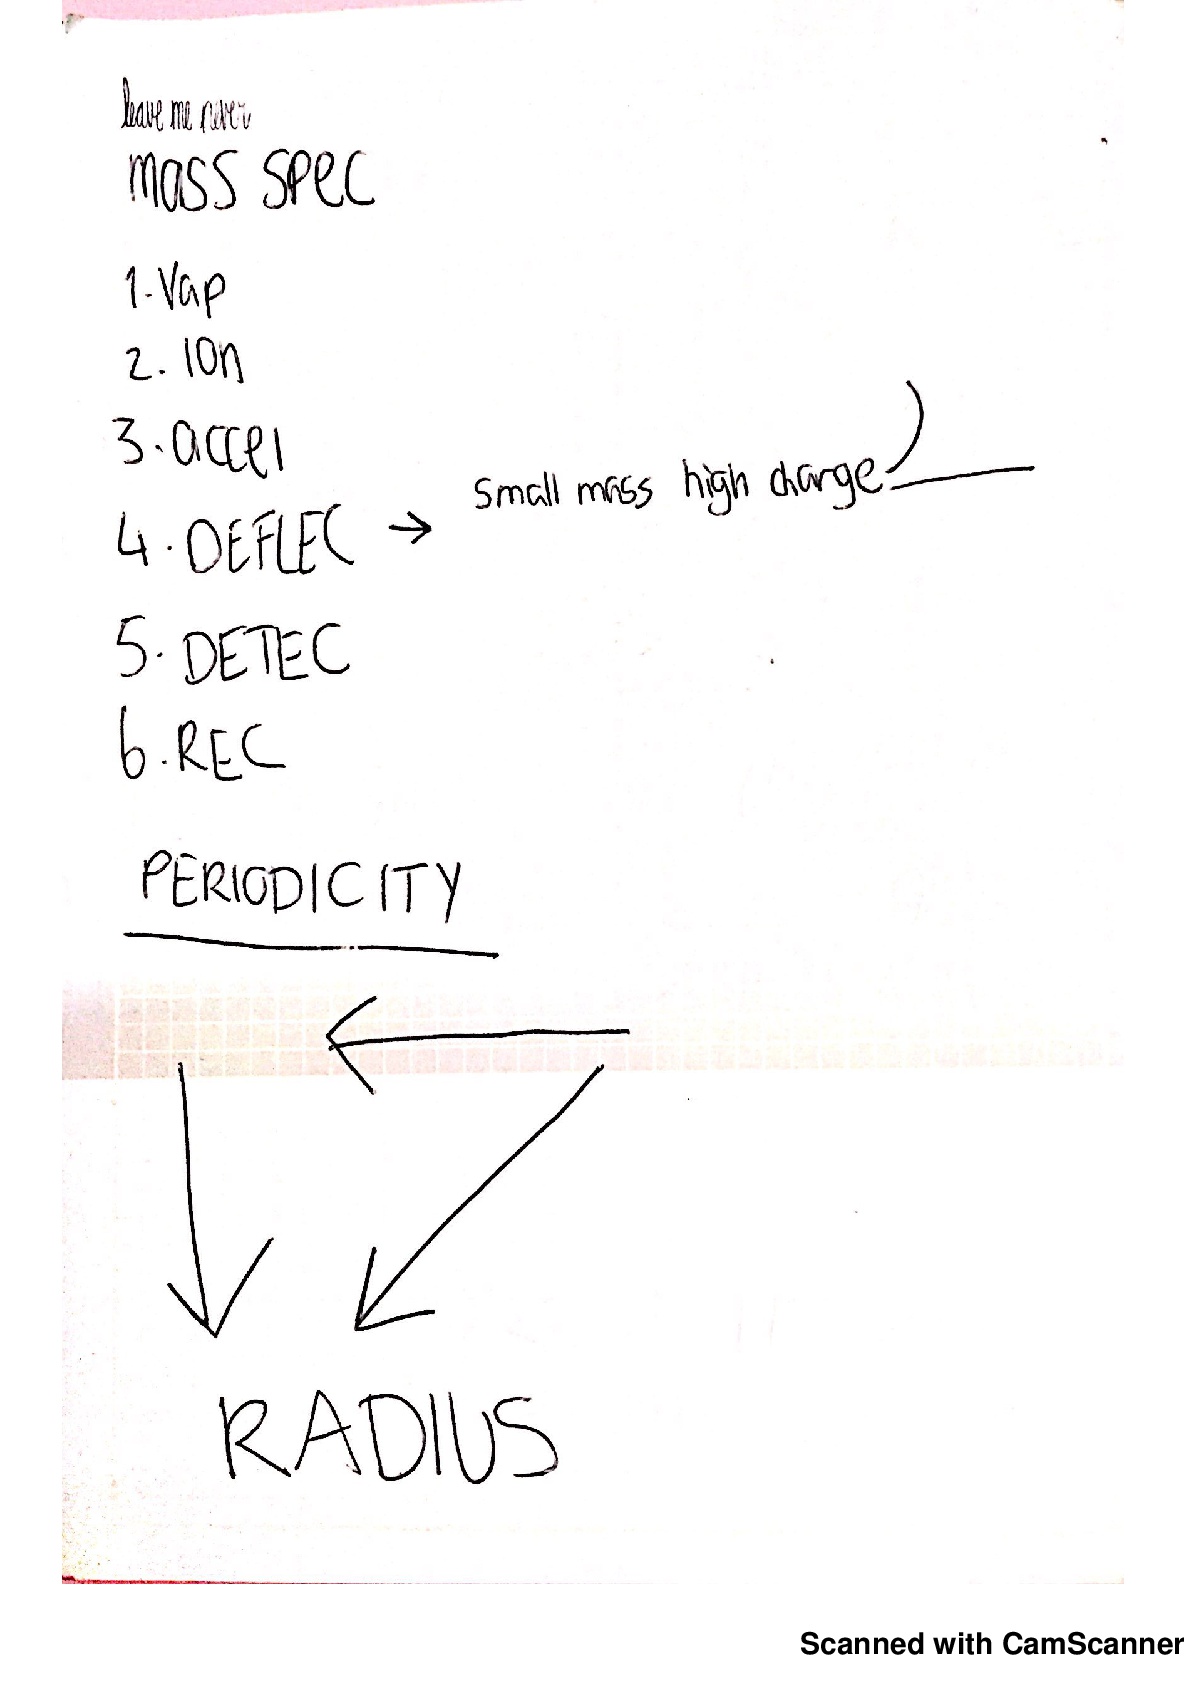 leave me never
mass spec
1. Vap
2. ion
3. accel
4. DEFLEC → small mass high charge
5. DETEC
6. REC
PERIODICITY
RADIUS
Scanned with CamScanner